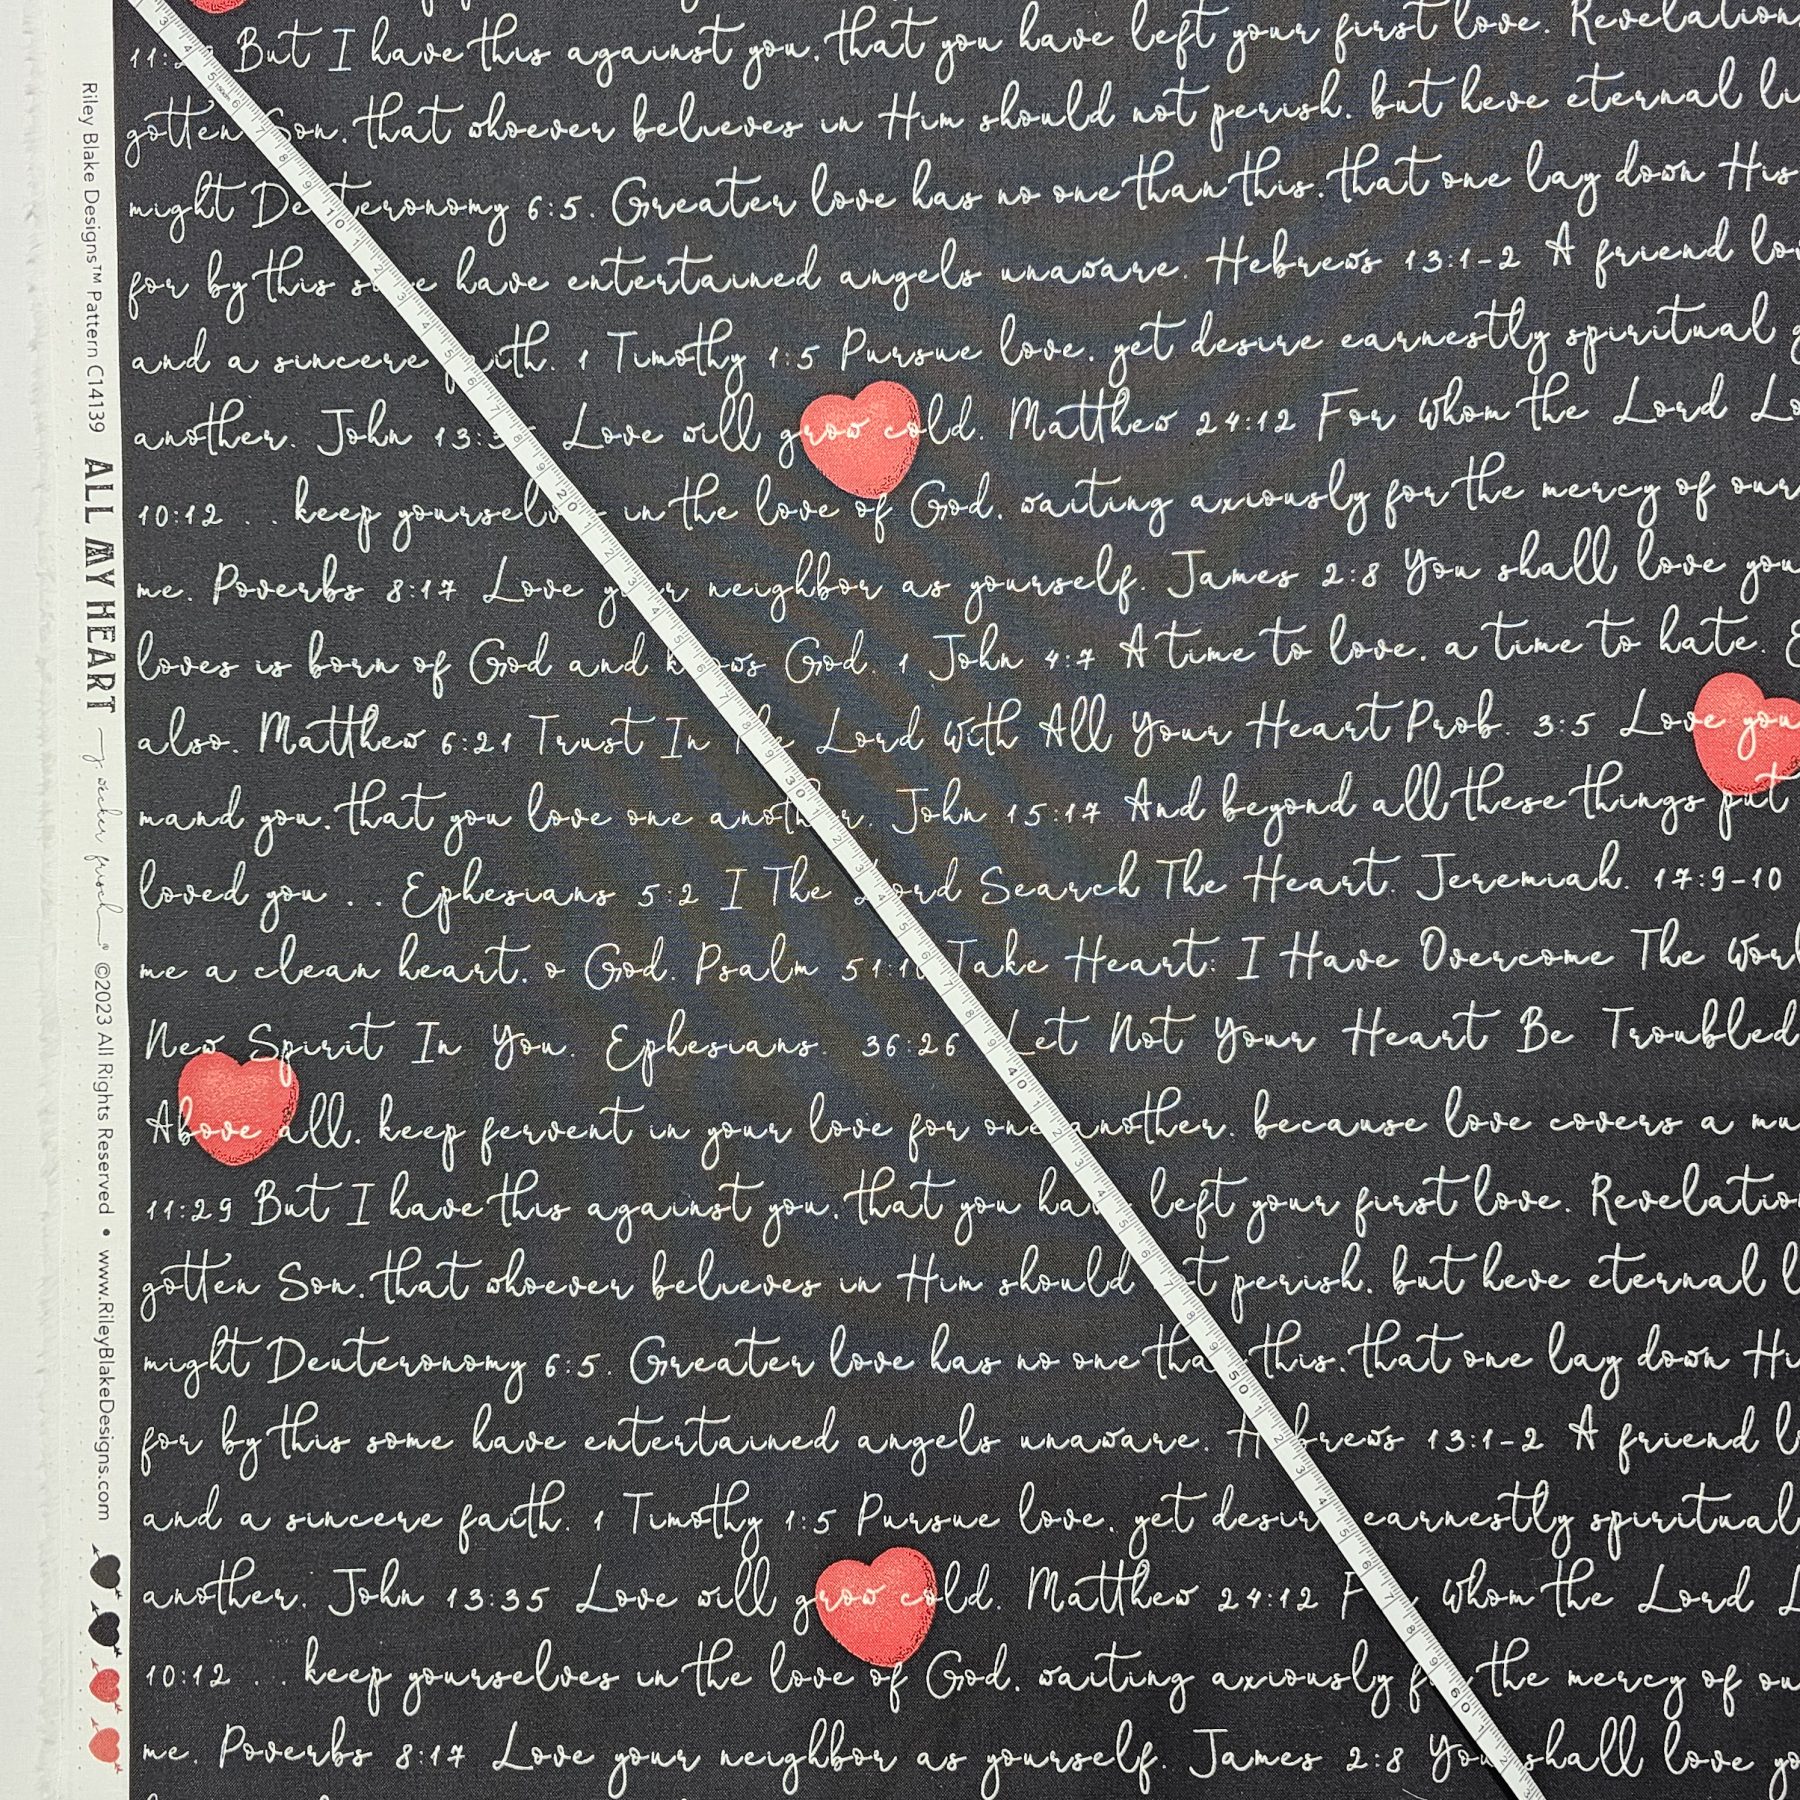 11:2 But I have this against you, that you have left your first love. Revelation
gotten Son, that whoever believes in Him should not perish, but heve eternal li
might Deuteronomy 6:5. Greater love has no one than this, that one lay down His
for by this some have entertained angels unaware. Hebrews 13:1-2 A friend lo
and a sincere faith. 1 Timothy 1:5 Pursue love, yet desire earnestly spiritual g
another. John 13:35 Love will grow cold. Matthew 24:12 For whom the Lord Lo
10:12 .. keep yourselves in the love of God, waiting axiously for the mercy of our
me. Poverbs 8:17 Love your neighbor as yourself. James 2:8 You shall love you
loves is born of God and knows God. 1 John 4:7 A time to love, a time to hate. E
also. Matthew 6:21 Trust In The Lord With All Your Heart Prob. 3:5 Love you
mand you, that you love one another. John 15:17 And beyond all these things put
loved you .. Ephesians 5:2 I The Lord Search The Heart. Jeremiah. 17:9-10
me a clean heart, o God. Psalm 51:10 Take Heart: I Have Overcome The Worl
New Spirit In You. Ephesians. 36:26 Let Not Your Heart Be Troubled
Above all, keep fervent in your love for one another, because love covers a mu
11:29 But I have this against you, that you have left your first love. Revelatio
gotten Son, that whoever believes in Him should not perish, but heve eternal l
might Deuteronomy 6:5. Greater love has no one than this, that one lay down Hi
for by this some have entertained angels unaware. Hebrews 13:1-2 A friend l
and a sincere faith. 1 Timothy 1:5 Pursue love, yet desire earnestly spiritual
another. John 13:35 Love will grow cold. Matthew 24:12 For whom the Lord L
10:12 .. keep yourselves in the love of God, waiting axiously for the mercy of ou
me. Poverbs 8:17 Love your neighbor as yourself. James 2:8 You shall love yo
Riley Blake Designs™ Pattern C14139 ALL MY HEART ©2023 All Rights Reserved • www.RileyBlakeDesigns.com
3 4 5 6 7 8 9 10 1 2 3 4 5 6 7 8 9 20 1 2 3 4 5 6 7 8 9 30 1 2 3 4 5 6 7 8 9 40 1 2 3 4 5 6 7 8 9 50 1 2 3 4 5 6 7 8 9 60 1 2 3